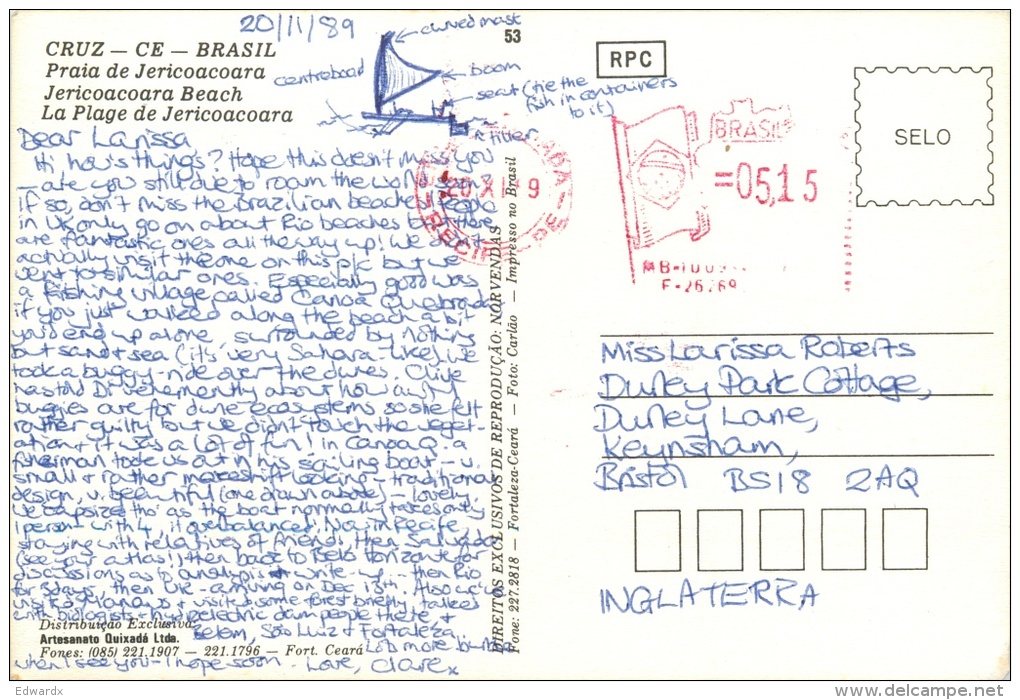 20/11/89
curved mast
53
CRUZ — CE — BRASIL
Praia de Jericoacoara
Jericoacoara Beach
La Plage de Jericoacoara
centreboad
boom
seat (tie the
fish in containers
to it)
tiller
RPC
BRASIL
=05,15
SELO
20 XI
RECIFE
Dear Larissa
Hi how's things? Hope this doesn't miss you
– are you still due to roam the world soon?
If so, don't miss the Brazilian beaches. People
in UK only go on about Rio beaches but there
are fantastic ones all the way up! We didn't
actually visit the one on this p/c but we
went to similar ones. Especially good was
a fishing village called Canoa Quebrada
if you just walked along the beach a bit
you'd end up alone surrounded by nothing
but sand & sea (it's very Sahara-like). We
took a buggy-ride over the dunes. Clive
has told Di vehemently about how awful
buggies are for dune ecosystems so she felt
rather guilty but we didn't touch the veget-
ation & it was a lot of fun! In Canoa Q. a
fisherman took us out in his sailing boat – v.
small & rather makeshift looking – traditional
design, v. beautiful (one drawn above) – lovely.
We capsized tho' as the boat normally takes only
1 person & with 4 it overbalanced. Now in Recife,
staying with relatives of then Salvador
(see your atlas!) then back to Belo Horizonte for
discussions as to analysis & write-up – then Rio
for 5 days, then UK – arriving on Dec 15th. Also we've
& visited some forest briefly, talked
with biologists & hydroelectric dam people there &
Belem, São Luiz & Fortaleza.
Lots more
when I see you – I hope soon. Love, Clare x
Distribuição Exclusiva:
Artesanato Quixadá Ltda.
Fones: (085) 221.1907 — 221.1796 — Fort. Ceará
DIREITOS EXCLUSIVOS DE REPRODUÇÃO: NORVENDAS
Fone: 227.2818 — Fortaleza-Ceará — Foto: Carlão — Impresso no Brasil
Miss Larissa Roberts
Durley Park Cottage,
Durley Lane,
Keynsham,
Bristol BS18 2AQ
INGLATERRA
Edwardx
delcampe.net